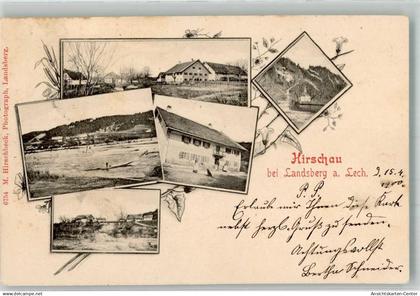 6754 M. Hirschbeck, Photograph, Landsberg.
Hirschau
bei Landsberg a. Lech.
D. 15.4.
1900.
P. P.
Erlaube mir Ihnen diese Karte
nebst herzl. Gruß zu senden.
Achtungsvollst
Bertha Schneider.
Ansichtskarten-Center